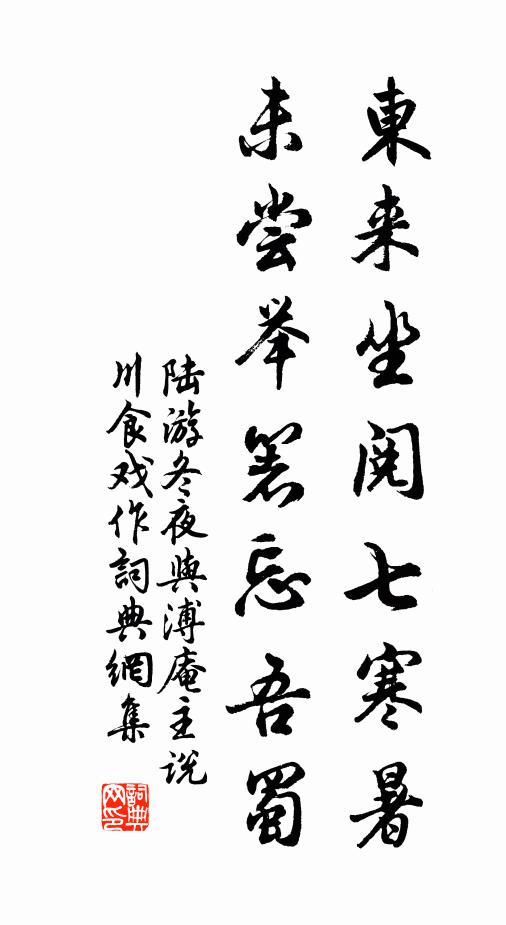 東来坐閱七寒暑
未尝举箸忘吾蜀
陆游冬夜與溥庵主说
川食戏作詞典網集
詞典网印